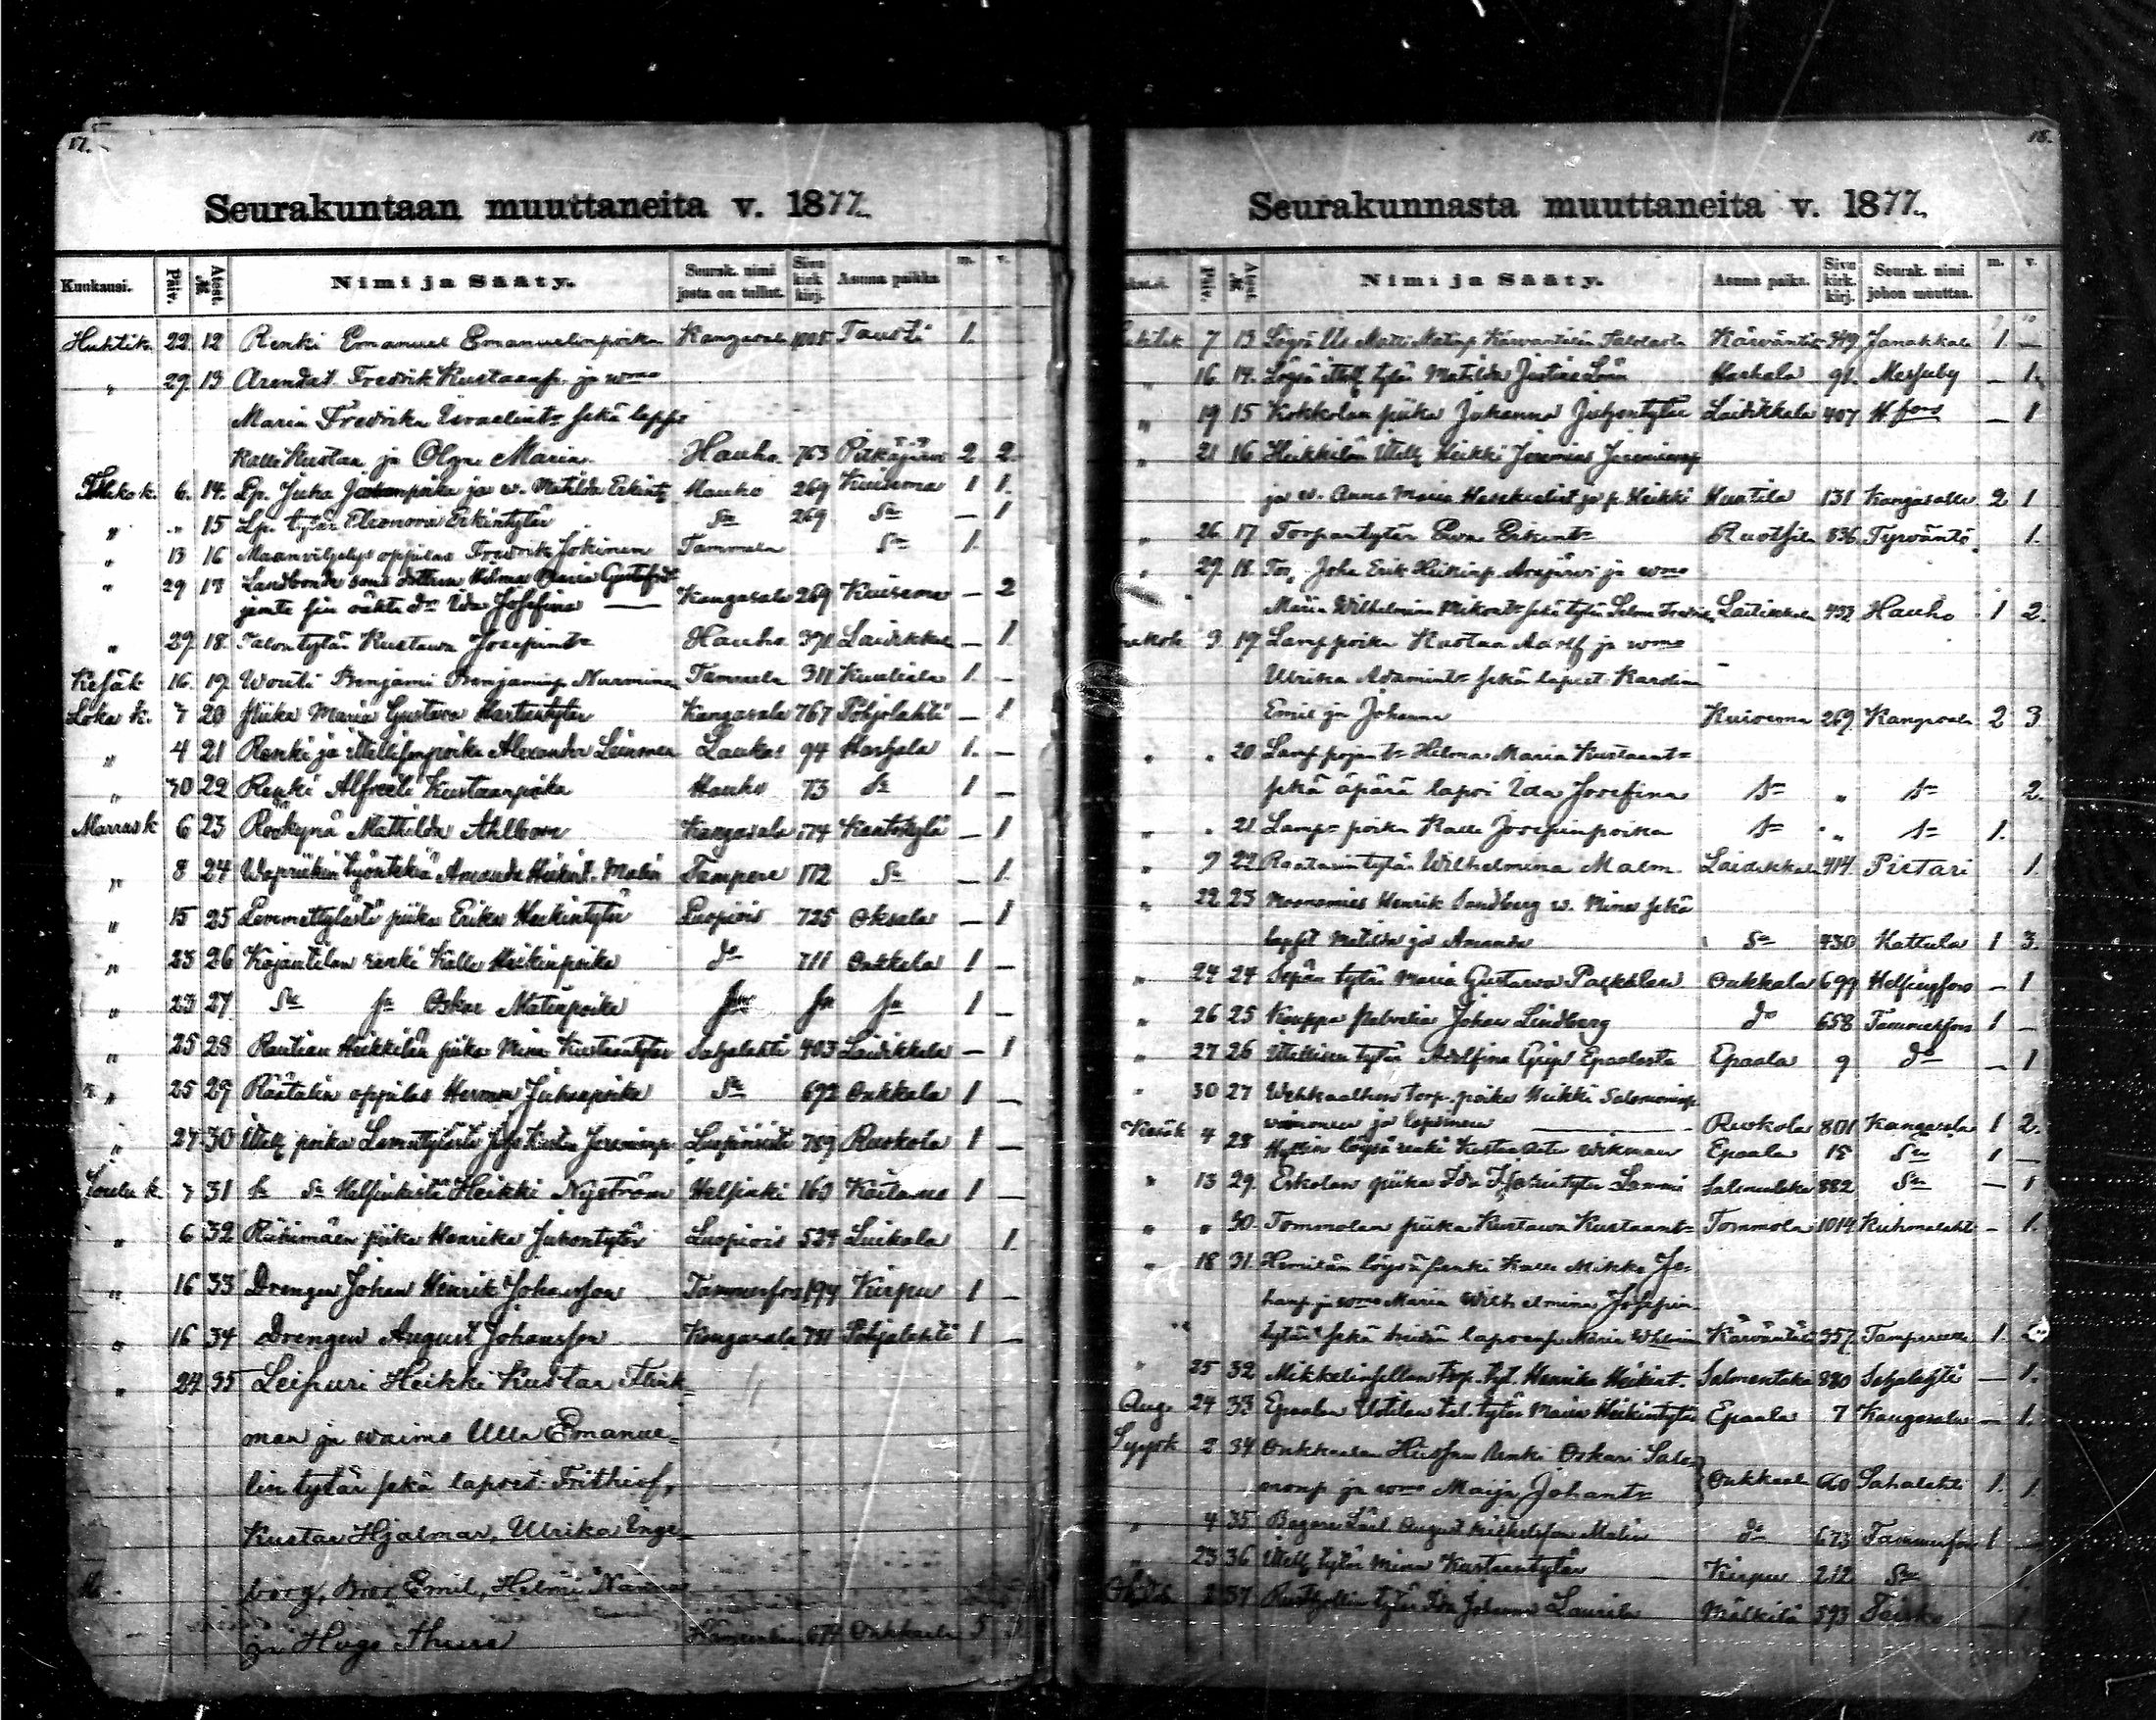 17.
Seurakuntaan muuttaneita v. 1877.
Kuukausi. Päiv. Atest. № Nimi ja Sääty. Seurak. nimi josta on tullut. Sivu kirk. kirj. Asuma paikka m. v.
Huhtik. 22 12 Renki Emanuel Emanuelinpoika Kangasala 1005 Tausti 1.
" 29 13 Arendat. Fredrik Kustaanp. ja wmo
Maria Fredrika Israelint= sekä laps.
Kalle Kustaa ja Olga Maria Hauho 763 Pitkäjärvi 2 2
Toukok. 6. 14. Lp. Juha Juhanpoika ja w. Matilda Erkint. Hauho 269 Kuisema 1 1.
" " 15 Lp. tytär Eleonora Erkintytär Sa 269 Sa — 1
" 13 16 Maanviljelys oppilas Fredrik Jokinen Tammela Sa 1.
" 29 17 Landbonde sons dottren Hilma Maria Gustafsd.
jemte sin oäkta dr Ida Josefina — Kangasala 269 Kuisema — 2
" 29. 18. Talontytär Kustawa Josefint= Hauho 370 Laidikkala — 1.
Kesäk 16. 19. Wouti Benjami Benjaminp. Nurminen Tammela 311 Kuuliala 1. -
Loka k. 7 20 Piika Maria Gustava Kustaantytär Kangasala 767 Pohjalahti — 1
" 4 21 Renki ja Itellisenpoika Alexander Leinonen Laukas 94 Haihala 1. —
" 30 22 Renki Alfreeti Kustaanpoika Hauho 73 Sa 1 —
Marrask 6 23 Mathilda Ahlbom Kangasala 174 Kantokylä — 1
" 8 24 Wapriikin työntekiä Amanda Heikint. Malin Tampere 172 Sa — 1.
" 15 25 Lemmettylästä piika Erika Heikintytär Luopiois 725 Oksala — 1
" 23 26 Kajantilan renki Kalle Heikinpoika do 711 Onkkala 1 —
" 23 27 Sa sa Oskar Matinpoika sa sa 1 —
" 25 28 Rautian Heikkilän piika Mina Kustaantytär Sahalahti 403 Laidikkala — 1
" 25 29 Räätälin oppilas Herman Juhanpoika Sa 692 Onkkala 1 —
" 27 30 Itell. poika 789 Ruokola 1 —
Joulu k. 7 31 Sa Sa Helsinkistä Heikki Nyström Helsinki 160 Kaitamo 1 —
" 6 32 Riihimäen piika Henrika Juhontytär Luopiois 524 Luikala 1.
" 16 33 Drengen Johan Henrik Johansson Tammerfors 194 Kirpu 1 —
" 16 34 Drengen August Johansson Kangasala 781 Pohjalahti 1 —
" 24 35 Leipuri Heikki Kustaa Flink=
man ja waimo Ulla Emanue=
lintytär sekä lapset: Frithiof,
Kustaa Hjalmar, Ulrika Inge=
borg, Bror Emil, Helmi Nanna
ja Hugo Thure 674 Onkkaala 5
18.
Seurakunnasta muuttaneita v. 1877.
Päiv. Atest. № Nimi ja Sääty. Asuma paikk. Sivu kirk. kirj. Seurak. nimi johon muuttaa. m. v.
7 13 Löysä Us. Matti Matinp. Kärwäntilän Talolasta Kärwäntilä 349 Janakkala 1 —
" 16. 14. Löysä Itell. tytär Matilda Justina Lönn Haihala 91. Messuby — 1.
" 19 15 Kokkolan piika Johanna Juhontytär Laidikkala 407 H.fors — 1
" 21 16 Heikkilän Itell. Heikki Jeremias Jeremianp.
ja w. Anna Maria ja p. Heikki Huntila 131 Kangasalla 2 1
" 26 17 Torpantytär Ewa Erkint= Ruotsila 836 Tyrwäntö 1.
" 29 18. Tor. Joha Erik Heikinp. ja wmo
Maria Wilhelmina Mikont= sekä tytär Selma Fredrik. Laidikkala 433 Hauho 1 2.
9 19. Lamp.poika Kustaa Adolf ja wmo
Ulrika Adamint= sekä lapset Karolina
Emil ja Johanna Kuisema 269 Kangasala 2 3
" " 20 Lamp.pojan t= Hilma Maria Kustaant=
sekä äpärä lapsi Ida Josefina Sa " Sa 2.
" " 21 Lamp= poika Kalle Josepinpoika Sa " Sa 1.
" 9 22 Räätärintytär Wilhelmina Malm Laidikkala 414. Pietari 1.
" 22 23 Muonamies Henrik Sandberg w. Mina sekä
lapset Matilda ja Amanda Sa 430 Hattula 1 3.
" 24 24 Sepän tytär Maria Gustawa Onkkala 699 Helsingfors — 1
" 26 25 Kauppa palwelia Johan Lindberg do 658 Tammerfors 1 —
" 27 26 Itellisen tytär Adolfina Grip Epaalasta Epaala 9 do — 1
" 30 27 Torp. poika Heikki Salomoninp.
waimonsa ja lapsinen — Ruokola 801 Kangasala 1 2.
Kesäk 4 28 Hyttin löysä renki Kustaa Wikman Epaala 15 Sa 1 —
" 13 29. Eskolan piika Ida Lammi Salmentaka 882 Sa — 1
" " 30. Tommolan piika Kustawa Kustaant= Tommola 1014 Kuhmalahti — 1.
" 18 31. löysä renki Kalle Mikko Jo=
hanp. ja wmo Maria Wilhelmina Josefin
tytär sekä heidän lapsensa Maria Wilhelmin Kärwäntilä 357 Tampereen 1.
" 25 32 Mikkelinsillan torp. tyt. Henrika Heikint. Salmentaka 880 Sahalahti — 1.
Aug. 24 33 Epaalan Uotilan tal. tytär Maria Heikintytär Epaala 7 Kangasala — 1.
Syysk 2 34 Onkkaalan renki Oskari Salo=
monp. ja wmo Maija Johant= Onkkaala 660 Sahalahti 1. 1.
" 4 35 Bagare Lärl. August Malin do 673 Tammerfors 1 —
" 23 36 Itell. tytär Mina Kustaantytär Kirpu 212 Sa
2 37 Rusthollin tytär Ida Johanna Laurila Mälkilä 593 — 1.